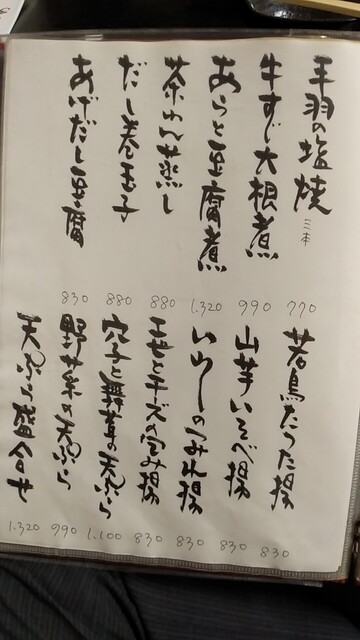 手羽の塩焼 三本 770
牛すじ大根煮 990
あらと豆腐煮 1.320
茶わん蒸し 880
だし巻玉子 880
あげだし豆腐 830
若鳥たつた揚 830
山芋いそべ揚 830
いわしのつみれ揚 830
エビとチーズの包み揚 830
穴子と舞茸の天ぷら 1.100
野菜の天ぷら 990
天ぷら盛合せ 1.320